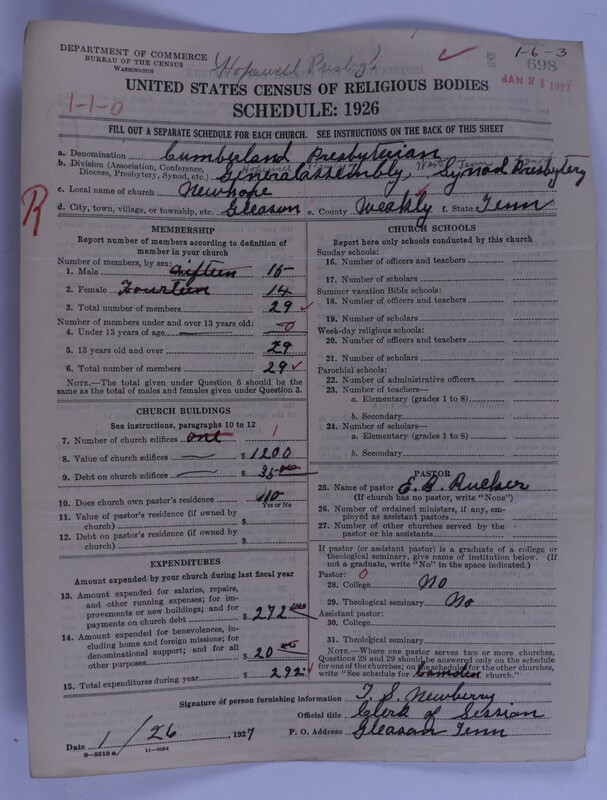 DEPARTMENT OF COMMERCE
BUREAU OF THE CENSUS
WASHINGTON
Hopewell Presby.
1-6-3
698
JAN 31 1927
1-1-0
UNITED STATES CENSUS OF RELIGIOUS BODIES
SCHEDULE: 1926
FILL OUT A SEPARATE SCHEDULE FOR EACH CHURCH. SEE INSTRUCTIONS ON THE BACK OF THIS SHEET
a. Denomination Cumberland Presbyterian
b. Division (Association, Conference, Diocese, Presbytery, Synod, etc.) General Assembly, West Tenn Synod Presbytery
c. Local name of church Newhope
R
d. City, town, village, or township, etc. Gleason e. County Weakly f. State Tenn
MEMBERSHIP
Report number of members according to definition of member in your church
Number of members, by sex:
1. Male fifteen 15
2. Female Fourteen 14
3. Total number of members 29
Number of members under and over 13 years old:
4. Under 13 years of age 0
5. 13 years old and over 29
6. Total number of members 29
NOTE.—The total given under Question 6 should be the same as the total of males and females given under Question 3.
CHURCH BUILDINGS
See instructions, paragraphs 10 to 12
7. Number of church edifices one 1
8. Value of church edifices $1200
9. Debt on church edifices $35.00
10. Does church own pastor's residence no
Yes or No
11. Value of pastor's residence (if owned by church) $
12. Debt on pastor's residence (if owned by church) $
EXPENDITURES
Amount expended by your church during last fiscal year
13. Amount expended for salaries, repairs, and other running expenses; for improvements or new buildings; and for payments on church debt $272.00
14. Amount expended for benevolences, including home and foreign missions; for denominational support; and for all other purposes $20.00
15. Total expenditures during year $292
CHURCH SCHOOLS
Report here only schools conducted by this church
Sunday schools:
16. Number of officers and teachers
17. Number of scholars
Summer vacation Bible schools:
18. Number of officers and teachers
19. Number of scholars
Week-day religious schools:
20. Number of officers and teachers
21. Number of scholars
Parochial schools:
22. Number of administrative officers
23. Number of teachers—
a. Elementary (grades 1 to 8)
b. Secondary
24. Number of scholars—
a. Elementary (grades 1 to 8)
b. Secondary
PASTOR
25. Name of pastor E. B. Rucker
(If church has no pastor, write "None")
26. Number of ordained ministers, if any, employed as assistant pastors
27. Number of other churches served by the pastor or his assistants
If pastor (or assistant pastor) is a graduate of a college or theological seminary, give name of institution below. (If not a graduate, write "No" in the space indicated:)
Pastor: 0
28. College No
29. Theological seminary No
Assistant pastor:
30. College
31. Theological seminary
NOTE.—Where one pastor serves two or more churches, Questions 28 and 29 should be answered only on the schedule for one of the churches; on the schedule for the other churches, write "See schedule for Camden church."
Signature of person furnishing information T. S. Newberry
Official title Clerk of Session
Date 1/26, 1927 P. O. Address Gleason Tenn
8-5518 a 11-9084